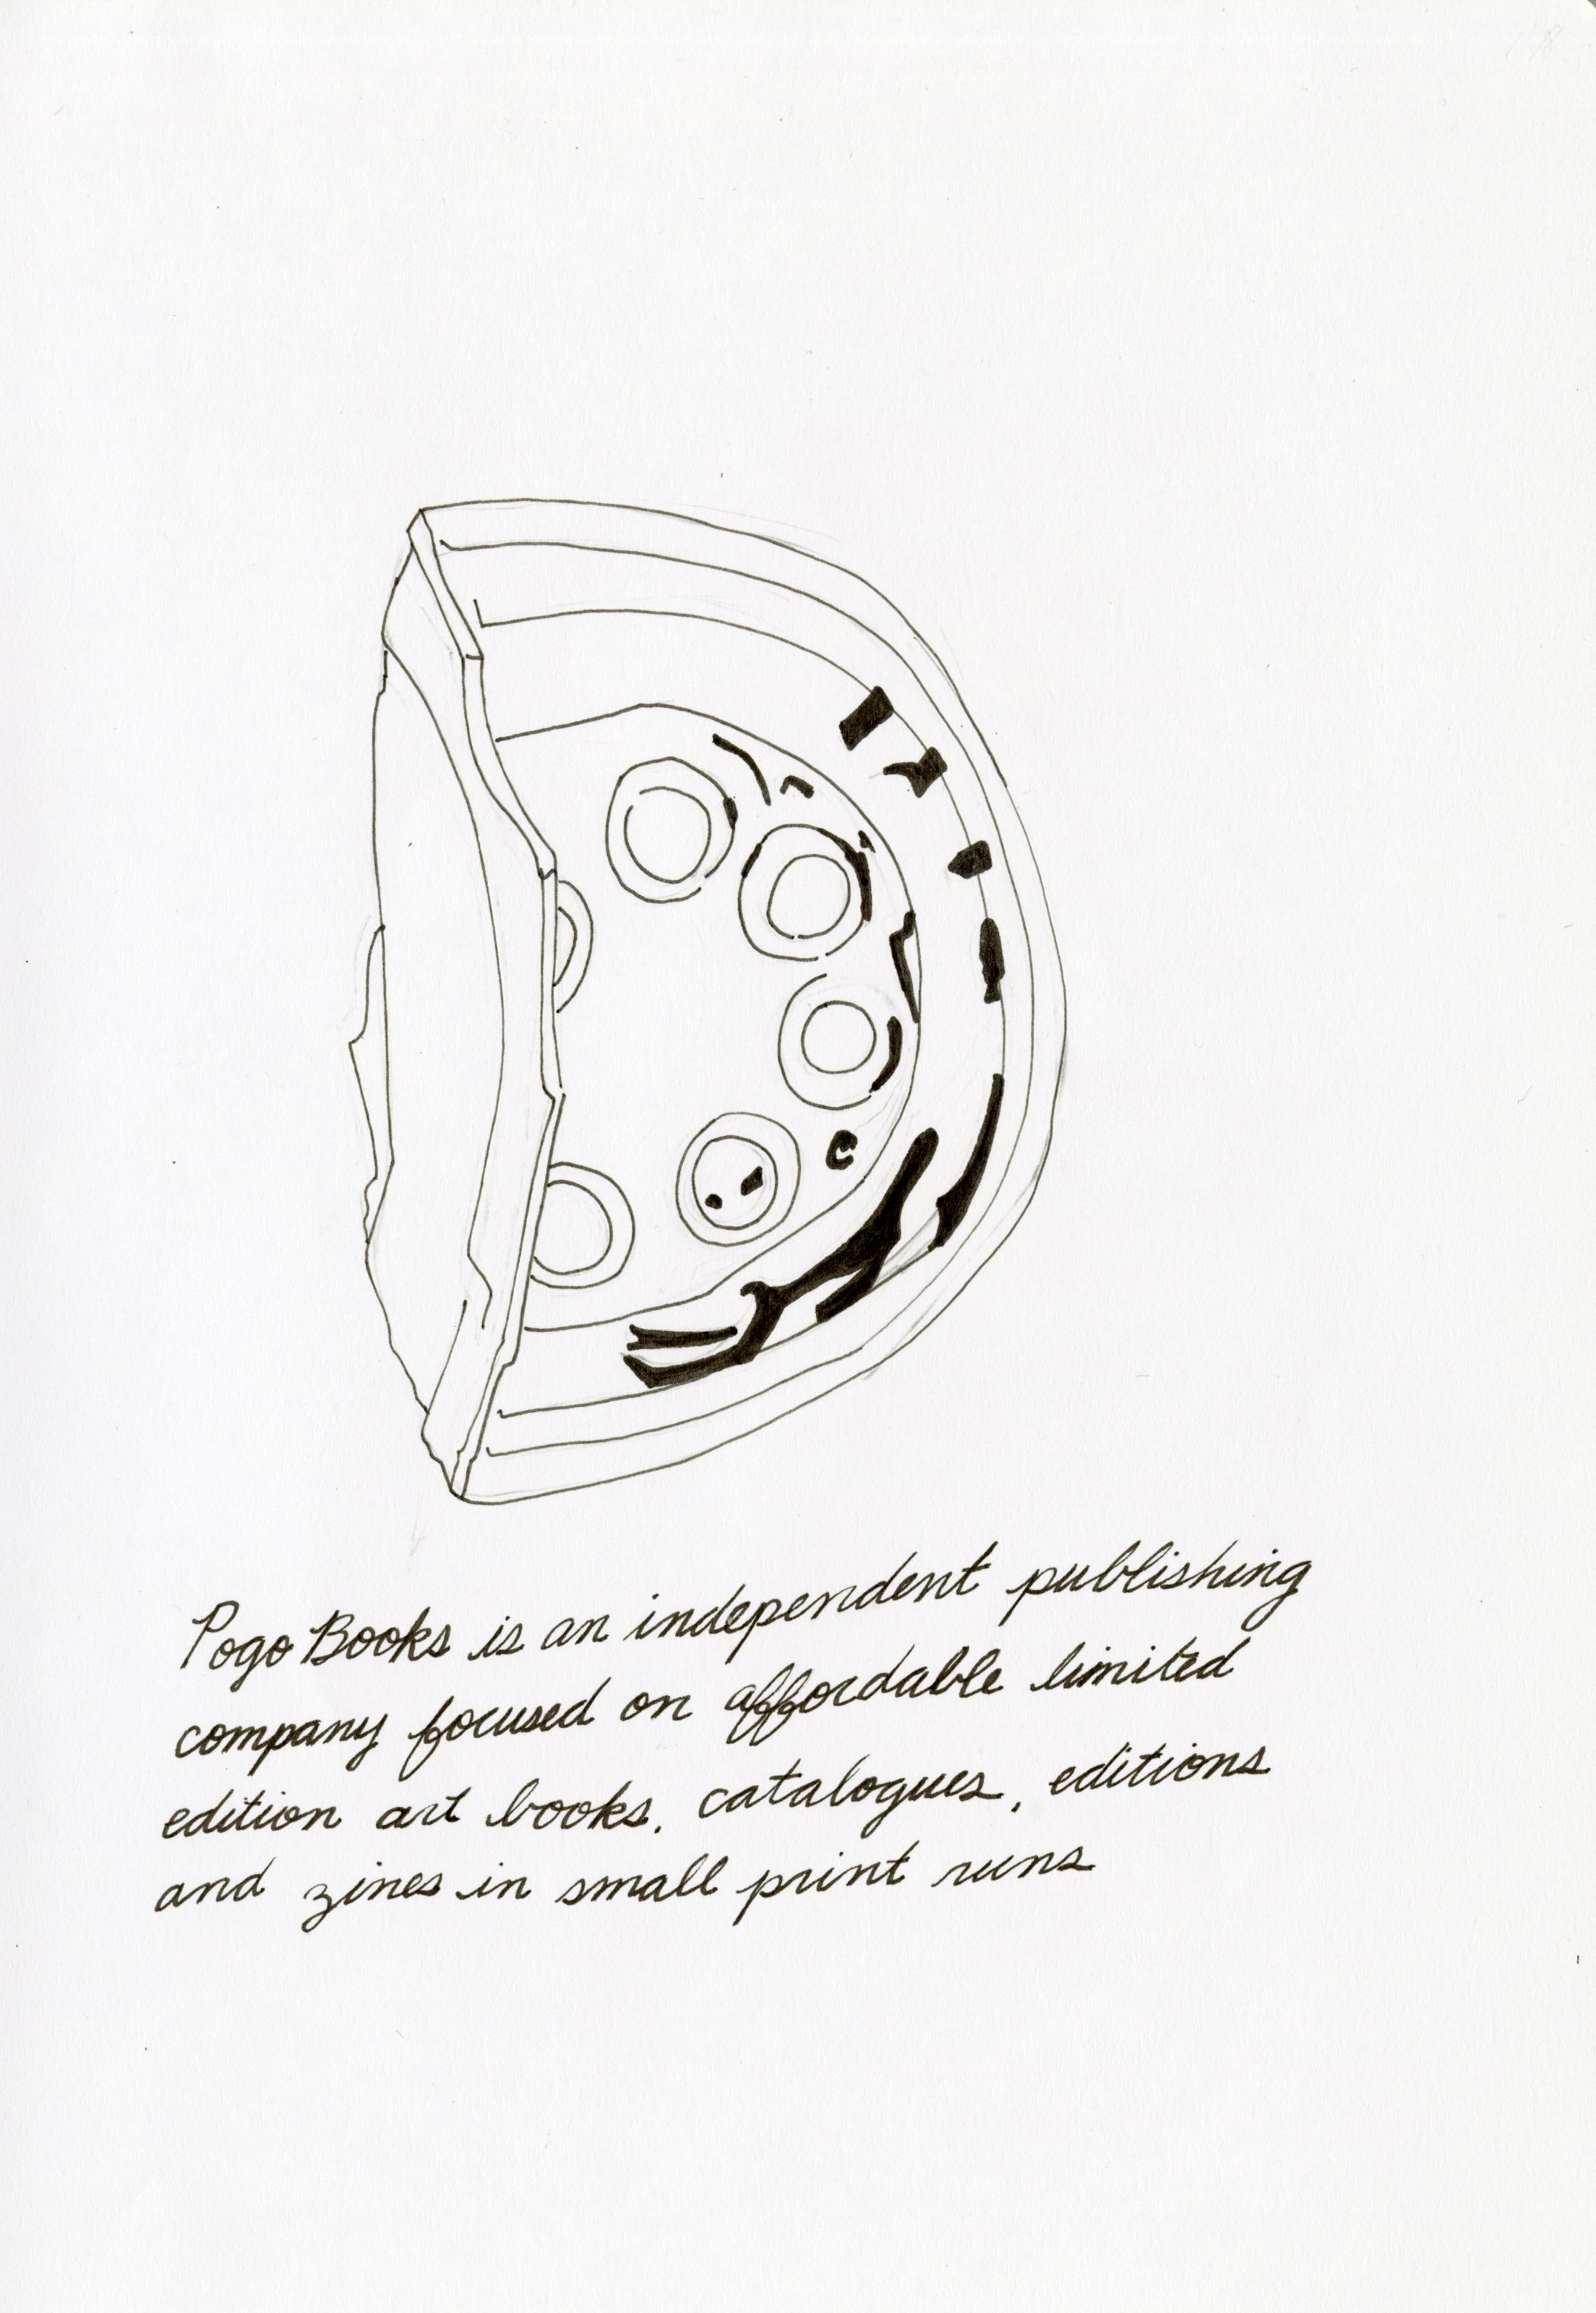 Pogo Books is an independent publishing
company focused on affordable limited
edition art books, catalogues, editions
and zines in small print runs